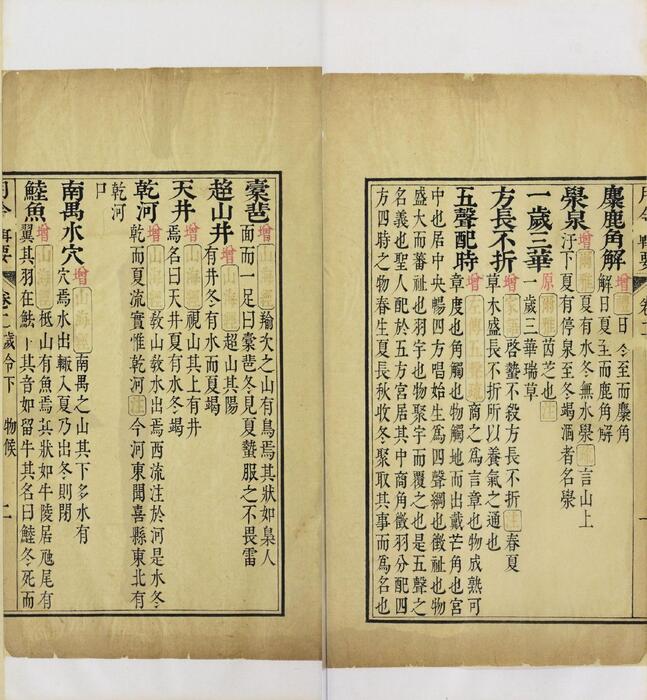 麋鹿角解 增 禮 日冬至而麋角
解日夏至而鹿角解
澩泉 增 爾雅 夏有水冬無水澩 註 言山上
汙下夏有停泉至冬竭涸者名澩
一歲三華 原 爾雅 茵芝也 註
一歲三華瑞草
方長不折 增 家語 啓蟄不殺方長不折 注 春夏
草木盛長不折所以養氣之通也
五聲配時 增 商之爲言章也物成熟可
章度也角觸也物觸地而出戴芒角也宮
中也居中央暢四方唱始生爲四聲綱也徵祉也物
盛大而蕃祉也羽宇也物聚宇而覆之也是五聲之
名義也聖人配於五方宮居其中商角徵羽分配四
方四時之物春生夏長秋收冬聚取其事而爲名也
橐𩇯 增 山海經 羭次之山有鳥焉其狀如梟人
面而一足曰橐𩇯冬見夏蟄服之不畏雷
超山井 增 山海經 超山其陽
有井冬有水而夏竭
天井 增 山海經 視山其上有井
焉名曰天井夏有水冬竭
乾河 增 山海經 教山教水出焉西流注於河是水冬
乾而夏流實惟乾河 注 今河東聞喜縣東北有
乾河
口
南禺水穴 增 山海經 南禺之山其下多水有
穴焉水出輙入夏乃出冬則閉
鯥魚 增 山海經 柢山有魚焉其狀如牛陵居虵尾有
翼其羽在魼下其音如留牛其名曰鯥冬死而
月令輯要 卷二 歲令下 物候 二